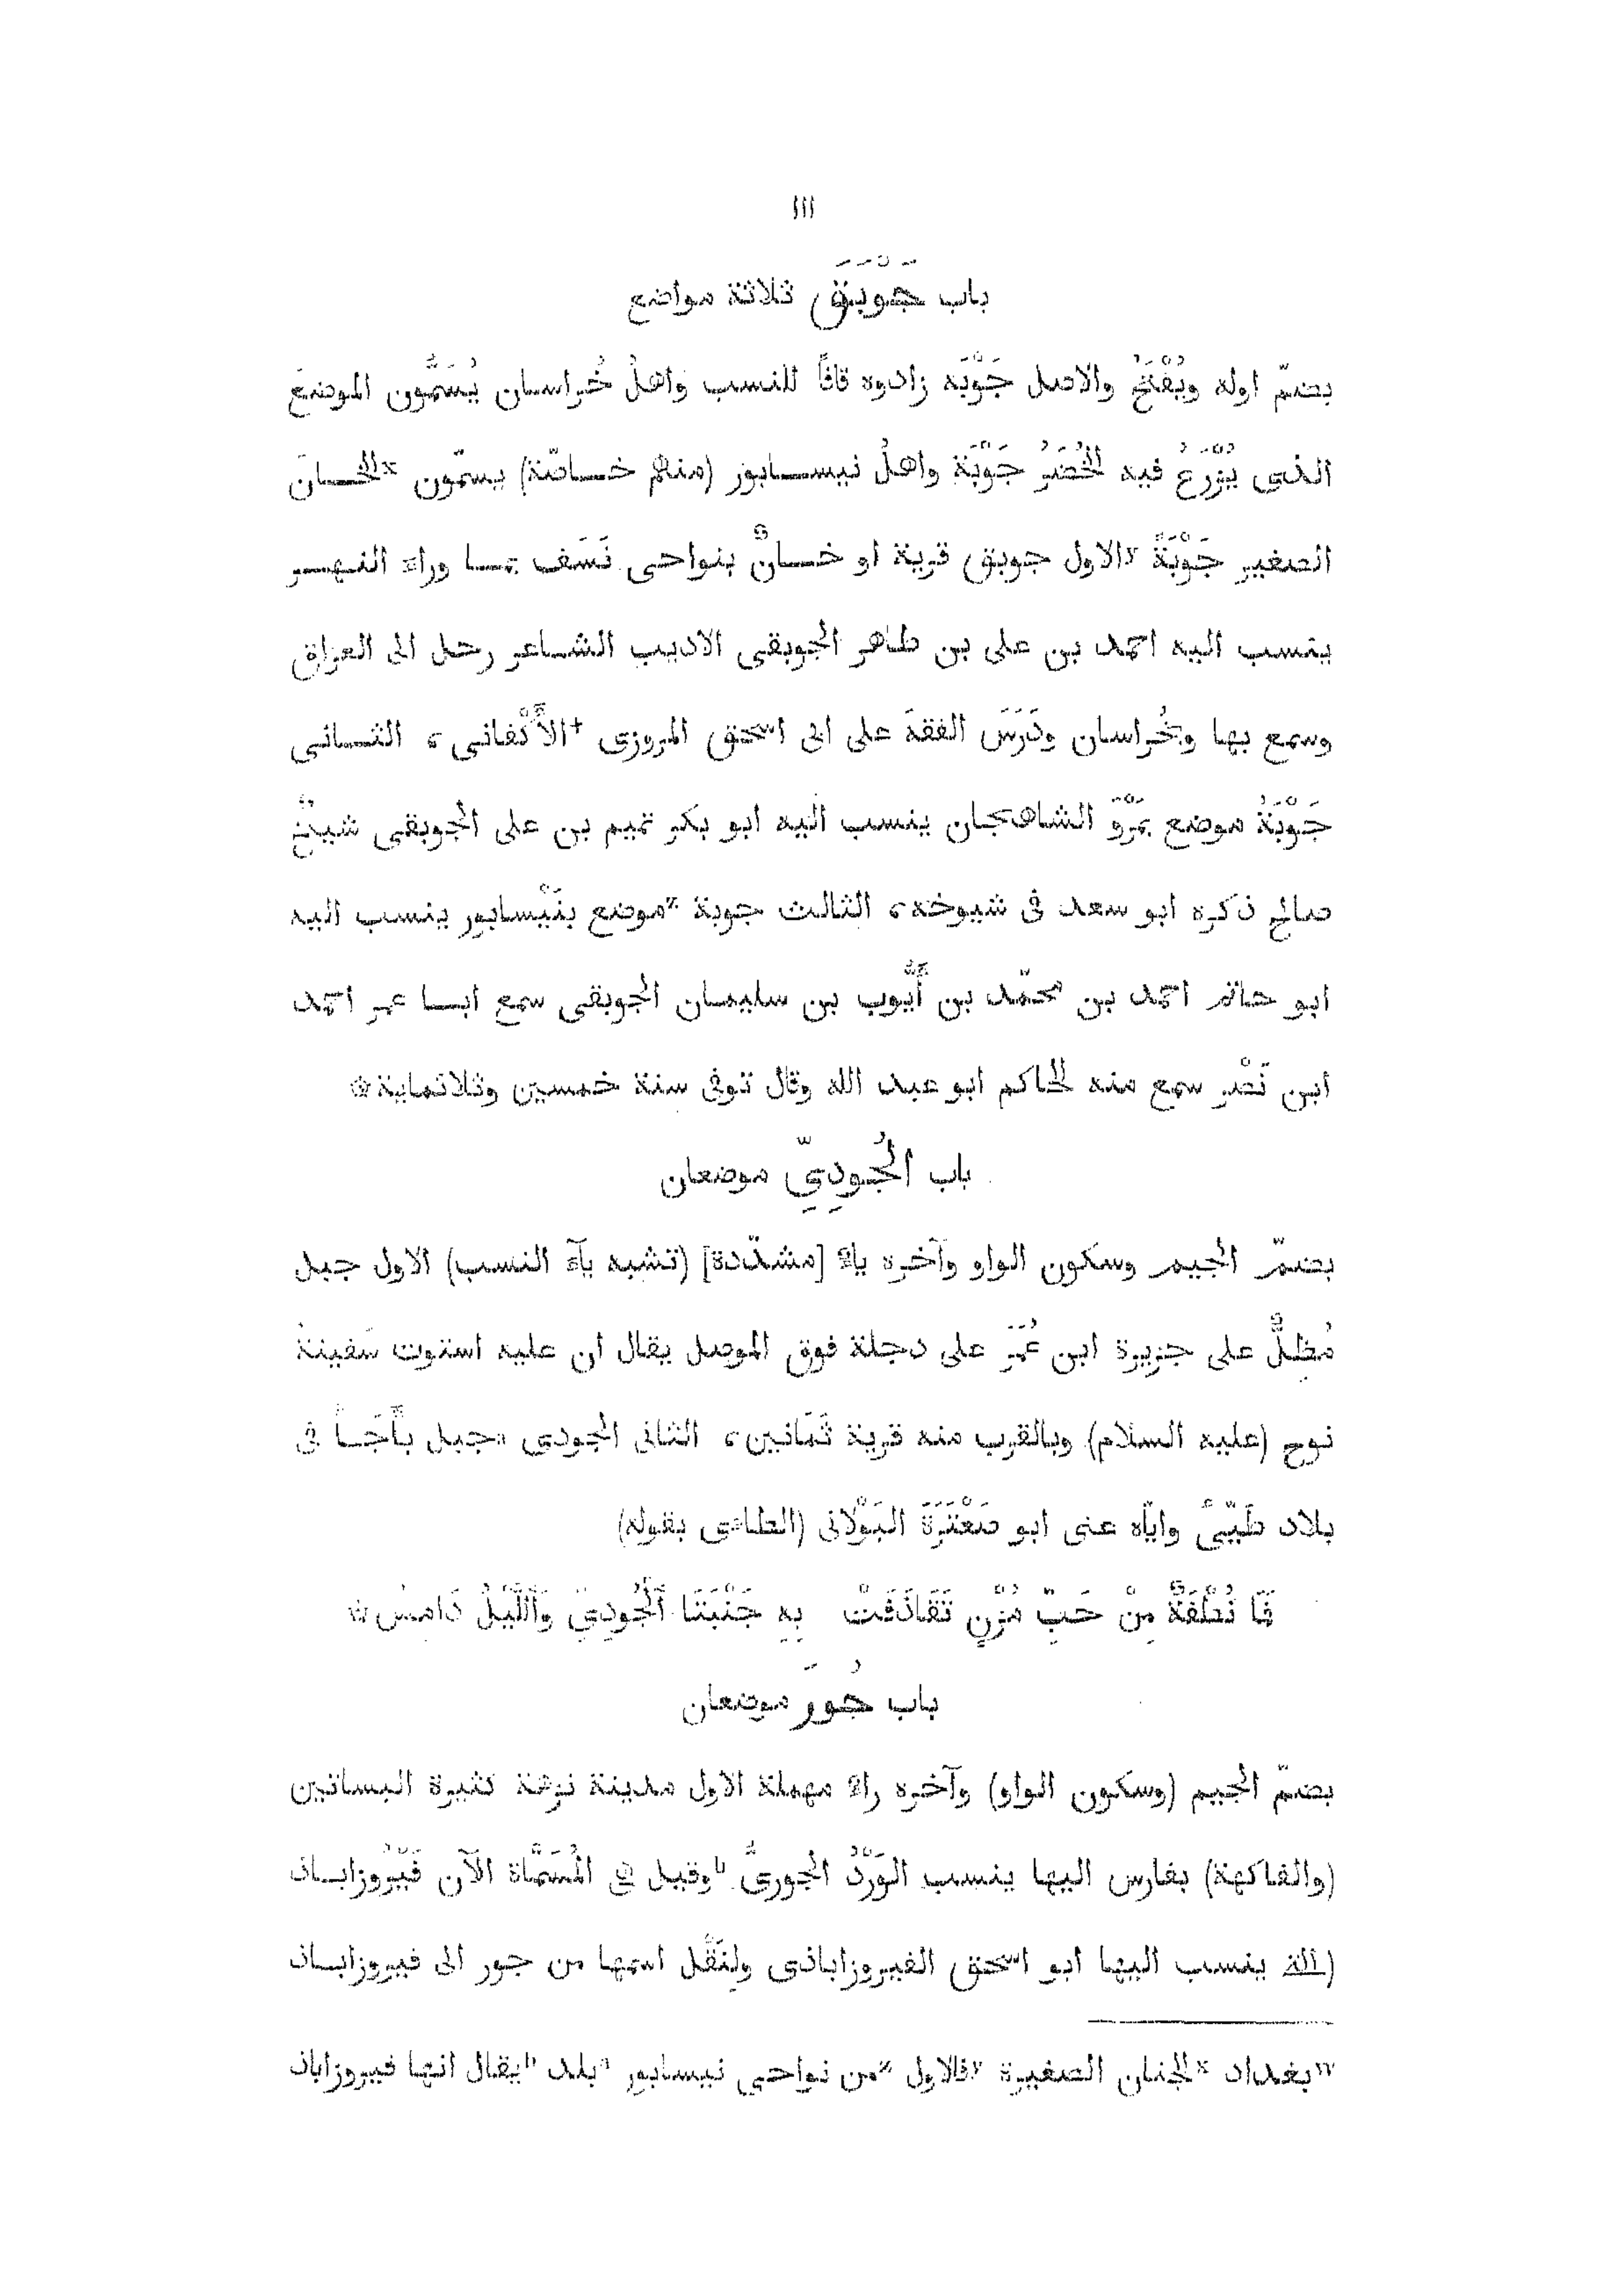 ١١١
باب جَوْبَقَ ثلاثة مواضع
بضمّ اوله ويُفْتَحُ والاصل جَوْبَه زادوه قافًا للنسب واهلُ خُراسان يُسَمُّون الموضعَ
الذى يُزْرَعُ فيه الخُضَرُ جَوْبَة واهلُ نيسابور (منهم خاصّة) يسمّون xالخانَ
الصغير جَوْبَةً yالاول جوبق قرية او خانٌ بنواحى نَسَف بما وراء النهر
ينسب اليه احمد بن على بن طاهر الجوبقى الاديب الشاعر رحل الى العراق
وسمع بها وبخُراسان ودَرَسَ الفقهَ على ابى اسحق المروزى +الأَنْفانى، الثانى
جَوْبَةُ موضع بمَرْوَ الشاهجان ينسب اليه ابو بكر تميم بن على الجوبقى شيخٌ
صالح ذكره ابو سعد فى شيوخه، الثالث جوبة zموضع بنَيْسابور ينسب اليه
ابو حاتم احمد بن محمّد بن أَيُّوب بن سليمان الجوبقى سمع ابا عمر احمد
ابن نَصْر سمع منه الحاكم ابو عبد الله وقال توفى سنة خمسين وثلاثماية ☼
باب الجُودِىِّ موضعان
بضمّ الجيم وسكون الواو وآخره ياء [مشدّدة] (تشبه يآءَ النسب) الاول جبل
مُطِلٌّ على جزيرة ابن عُمَرَ على دجلة فوق الموصل يقال ان عليه استوت سَفينةُ
نوح (عليه السلام) وبالقرب منه قرية ثَمَانين، الثانى الجودى aجبل بأَجَأ فى
بلاد طَيّىءٍ واياه عنى ابو صَعْتَرَةَ البَوْلانى (الطاءى بقوله)
فَمَا نُطْفَةٌ مِنْ حَبِّ مُزْنٍ تَقَاذَفَتْ بِهِ جَنْبَتَا ٱلْجُودِىِّ وَٱللَّيْلُ دَامِسُ ☼
باب جُورَ موضعان
بضمّ الجيم (وسكون الواو) وآخره راء مهملة الاول مدينة نزهة كثيرة البساتين
(والفاكهة) بفارس اليها ينسب الوَرْدُ الجورىُّ bوقيل هى المُسَمَّاة الآن فَيْرُوزاباذ
(التى ينسب اليها ابو اسحق الفيروزاباذى ولِنَقْل اسمها من جور الى فيروزاباذ
wبغداد xالجنان الصغيرة yفالاول zمن نواحى نيسابور aبلد bيقال انها فيروزاباذ